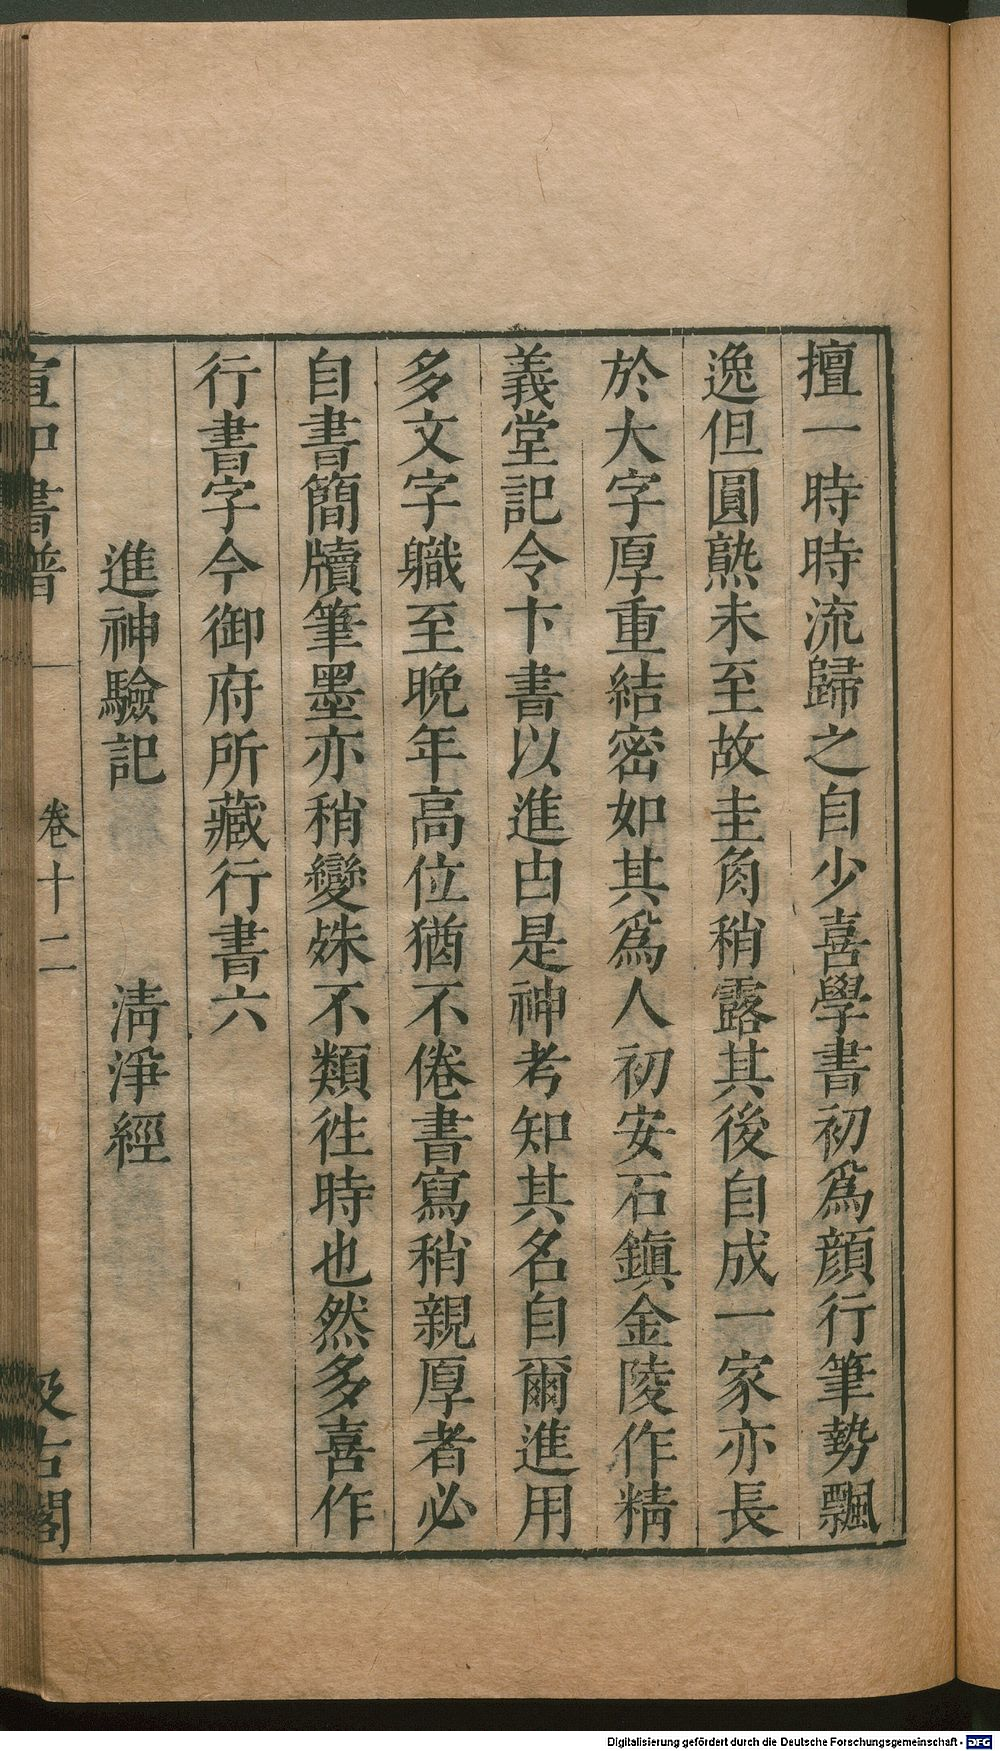 擅一時時流歸之自少喜學書初爲顔行筆勢飄
逸但圓熟未至故圭角稍露其後自成一家亦長
於大字厚重結密如其爲人初安石鎭金陵作精
義堂記令卞書以進由是神考知其名自爾進用
多文字職至晚年高位猶不倦書寫稍親厚者必
自書簡牘筆墨亦稍變姝不類徃時也然多喜作
行書字今御府所藏行書六
進神驗記　清淨經
宣和書譜　卷十二　汲古閣
Digitalisierung gefördert durch die Deutsche Forschungsgemeinschaft - DFG